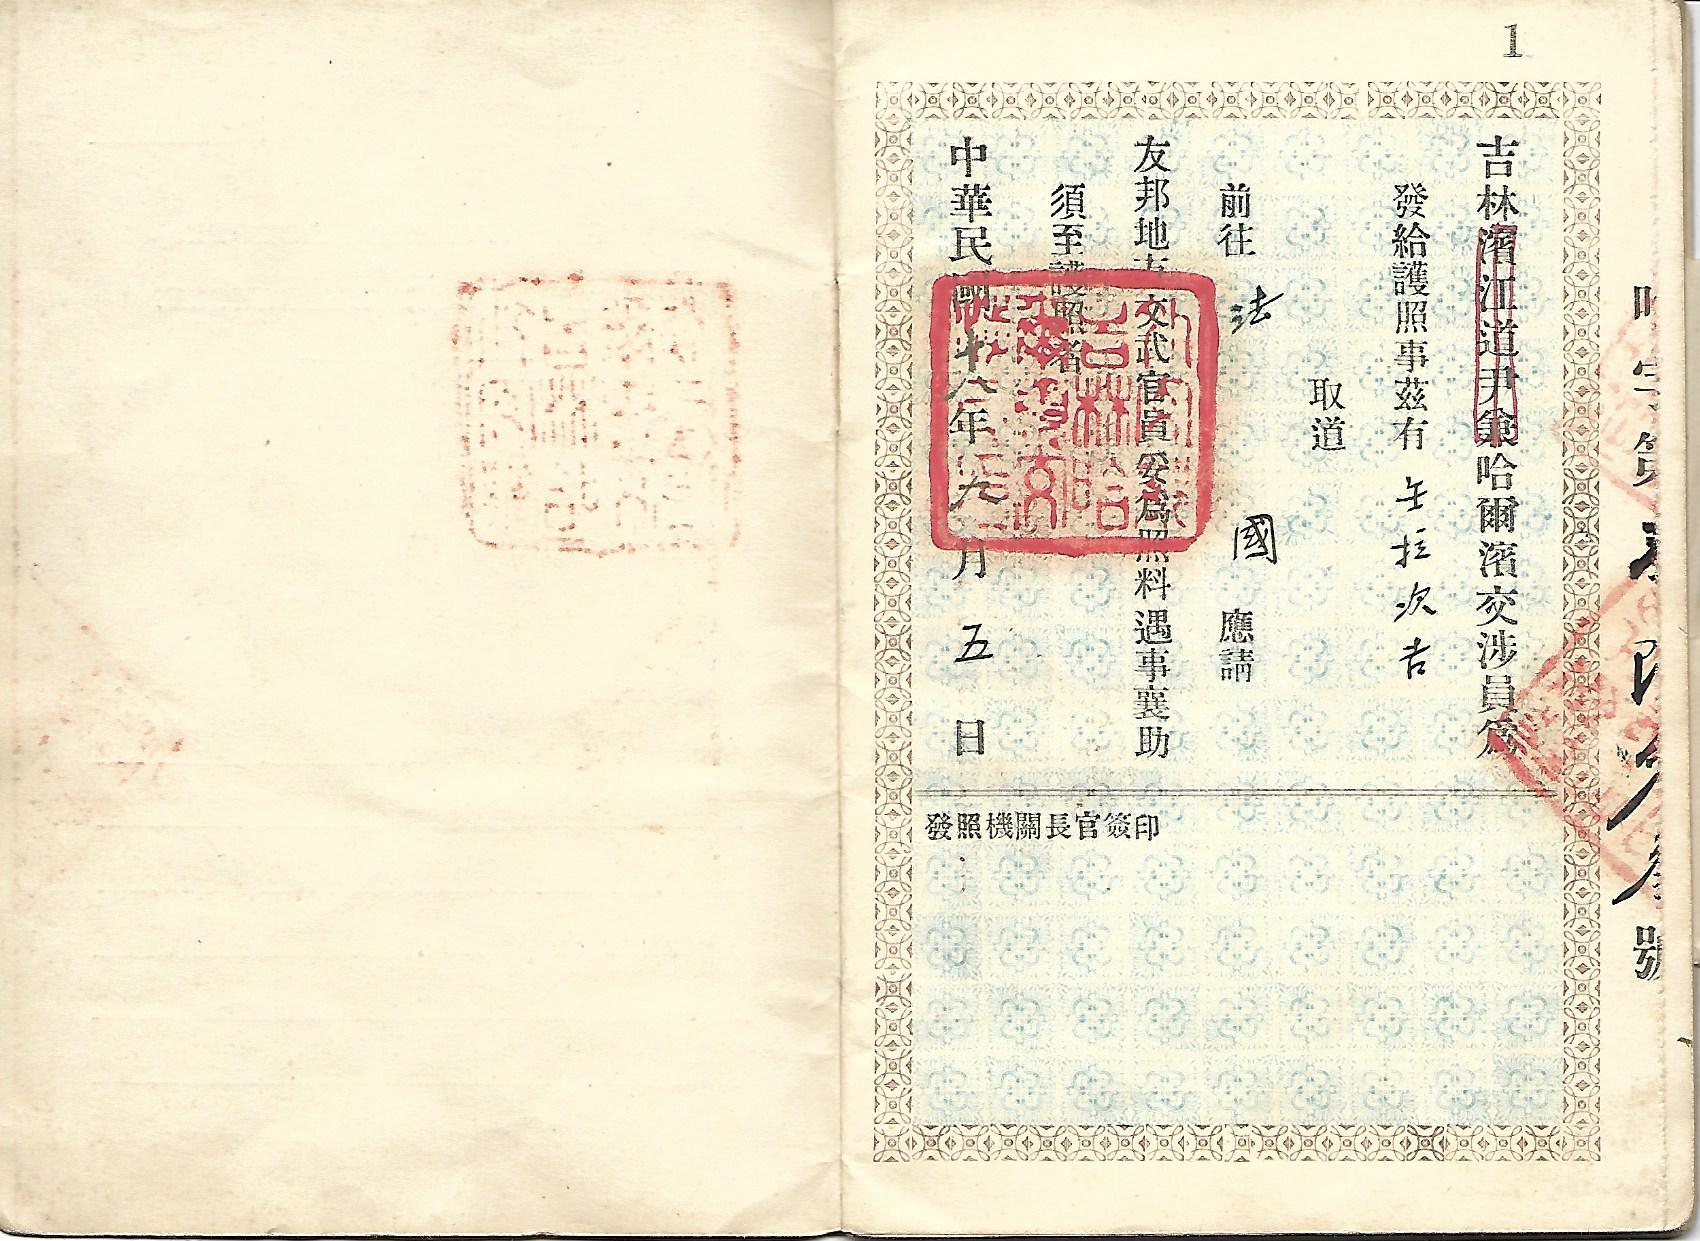 1
字第
號
吉林濱江道尹兼哈爾濱交涉員為
發給護照事茲有
取道
前往 法 國 應請
友邦地方文武官員妥為照料遇事襄助
須至護照者
中華民國十八年九月五日
發照機關長官簽印